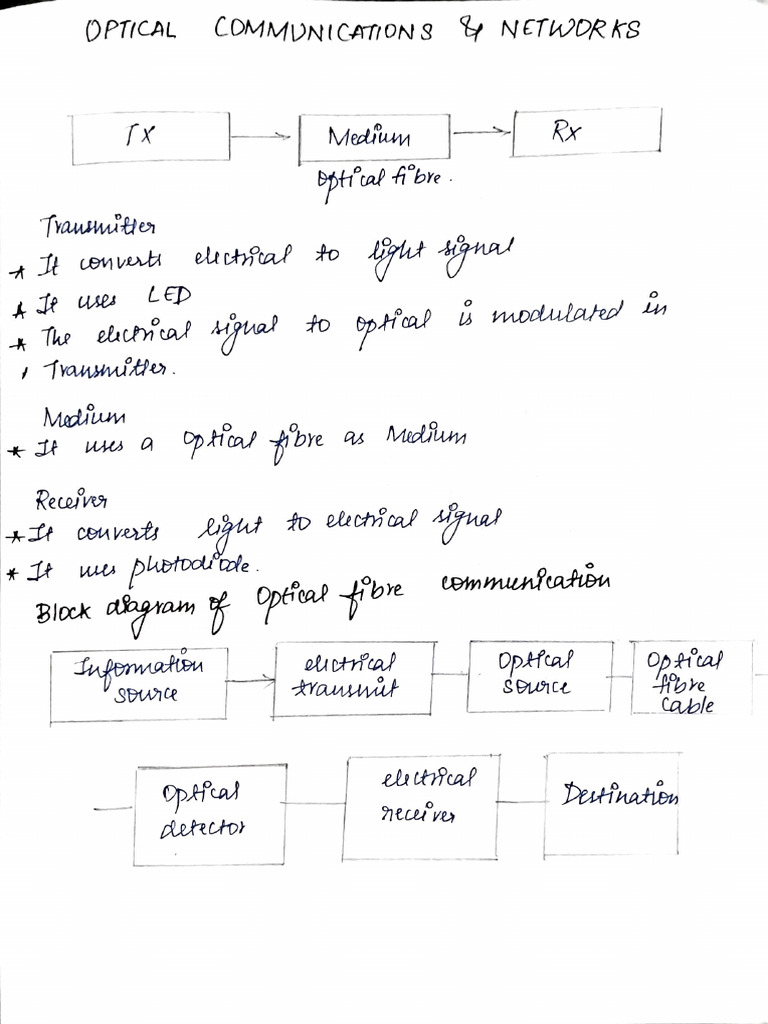 OPTICAL COMMUNICATIONS & NETWORKS
TX Medium Rx
Optical fibre.
Transmitter
* It converts electrical to light signal
* It uses LED
* The electrical signal to optical is modulated in
Transmitter.
Medium
* It uses a optical fibre as Medium
Receiver
* It converts light to electrical signal
* It uses photodiode.
Block diagram of Optical fibre communication
Information electrical Optical Optical
source transmit source fibre
cable
Optical electrical Destination
detector receiver